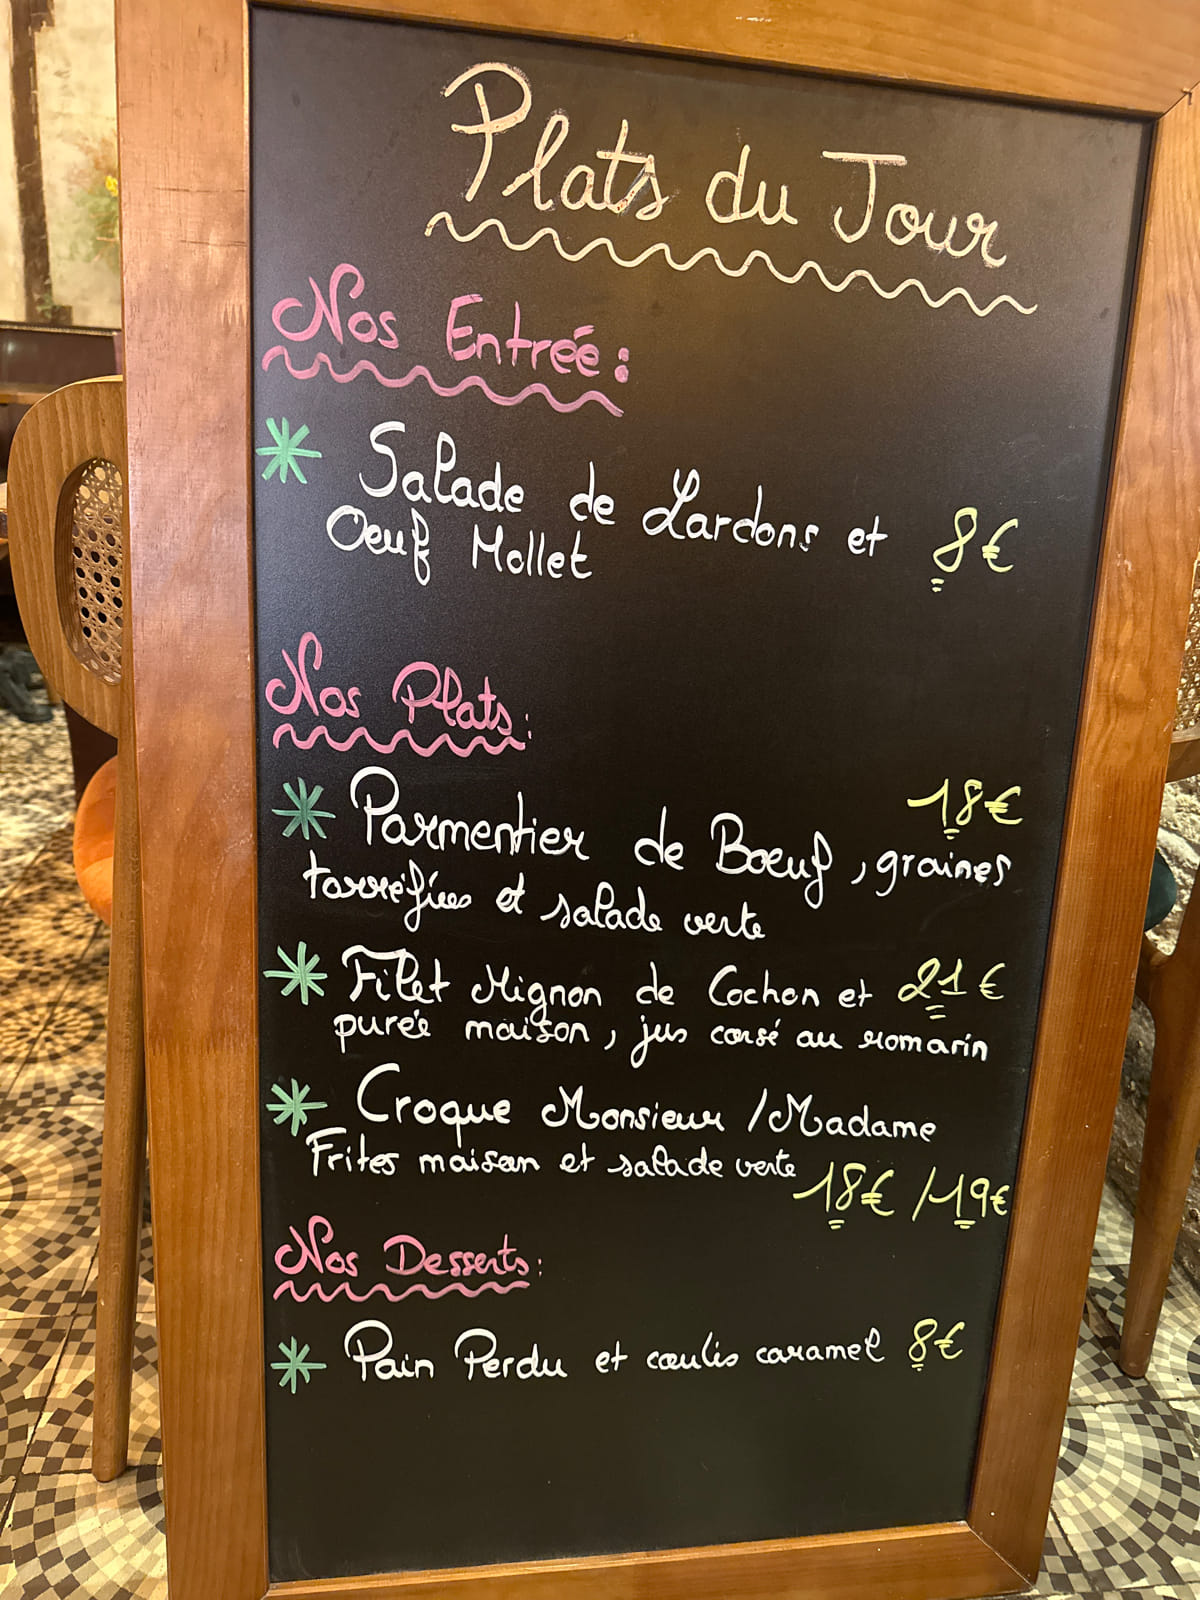 Plats du Jour
Nos Entrée :
Salade de Lardons et 8€
Oeuf Mollet
Nos Plats :
18€
Parmentier de Bœuf, graines
torréfiées et salade verte
Filet Mignon de Cochon et 21€
purée maison, jus corsé au romarin
Croque Monsieur / Madame
Frites maison et salade verte
18€ / 19€
Nos Desserts :
Pain Perdu et coulis caramel 8€